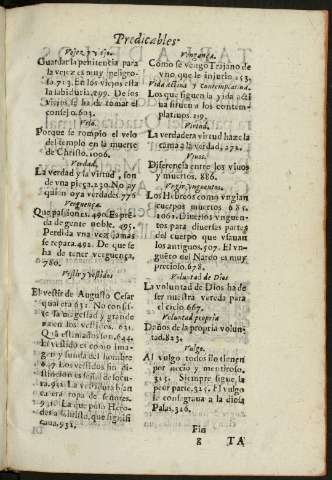 Predicables
Vejez, y viejo.
Guardar la penitencia para
la vejez es muy peligro-
so. 713. En los viejos esta
la sabiduria, 299. De los
viejos se ha de tomar el
consejo. 603.
Velo.
Porque se rompio el velo
del templo en la muerte
de Christo. 1006.
Verdad.
La verdad y la virtud, son
de vna pieça. 230. No ay
quien oya verdades. 770
Verguença.
Que passion es. 490. Es prẽ
da de gente noble. 495.
Perdida vna vez jamas
se repara. 492. De que se
ha de tener verguença,
780.
Vestir y vestidos
El vestir de Augusto Cesar
qual era 631. No consi-
ste la magestad y grande
za en los vestidos. 631.
Que estimados son, 644.
El vestido es como ima-
gen y funda del hombre
647. Los vestidos sin
destierro es señal de locu-
ra. 951. La vestidura blan
ca era ropa de señores.
931. La que puso Hero-
des a Christo, que signifi
caua. 932.
Vengança.
Como se vengo Trajano de
vno que le injurio. 163.
Vida actiua y contemplatiua.
Los que siguen la vida acti
ua siruen a los contem-
platiuos. 219.
Virtud.
La verdadera virtud haze la
cama a la verdad. 272.
Viuos.
Diferencia entre los viuos
y muertos. 886.
Vngir, vnguentos.
Los Hebreos como vngian
cuerpos muertos. 684.
1062. Diuersos vnguen-
tos para diuersas partes
del cuerpo que vsauan
los antiguos. 507. El vn-
guẽto del Nardo es muy
precioso. 678.
Voluntad de Dios
La voluntad de Dios ha de
ser nuestra vereda para
el cielo 667.
Voluntad propria
Daños de la propria volun-
tad. 823.
Vulgo.
Al vulgo todos lo tienen
por necio y mentiroso.
315. Siempre sigue la
peor parte. 315. El vulgo
se consagraua a la diosa
Palas. 316.
Fin
g TA